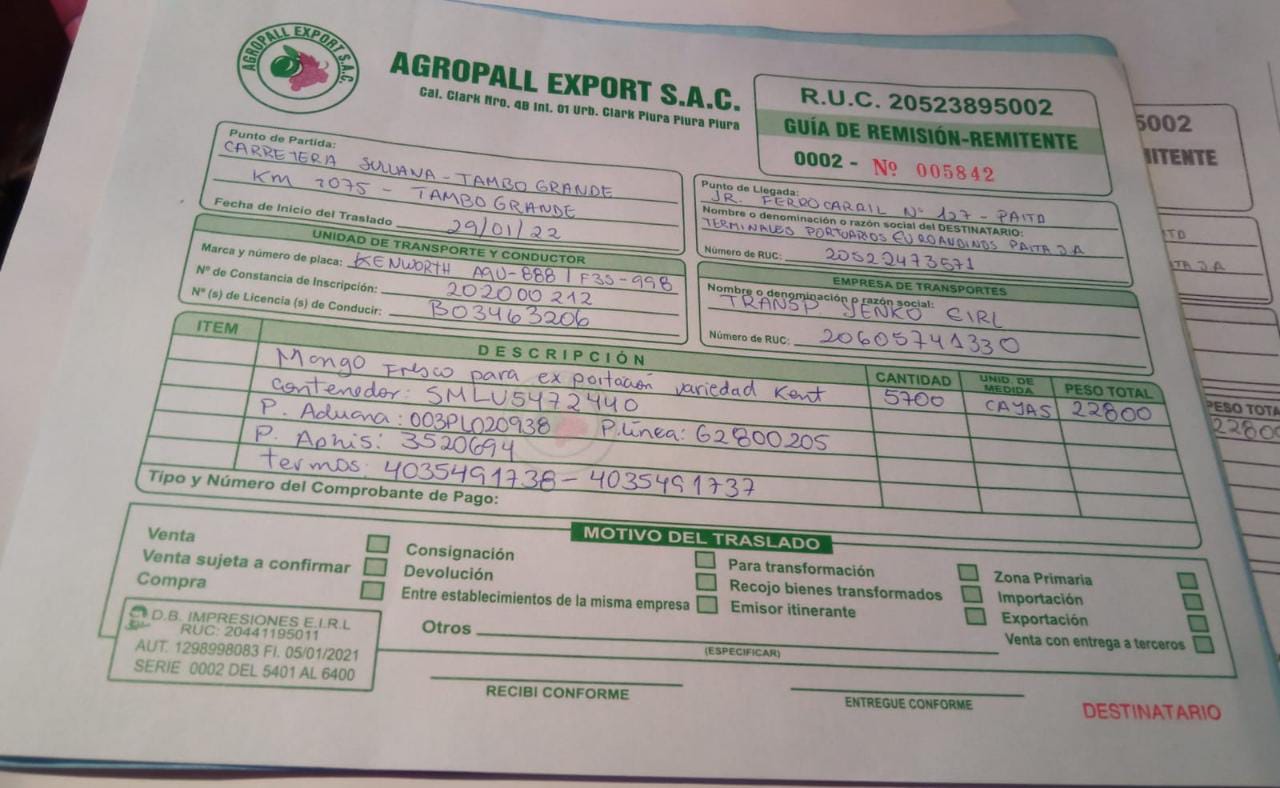 AGROPALL EXPORT S.A.C.
AGROPALL EXPORT S.A.C.
Cal. Clark Nro. 4B Int. 01 Urb. Clark Piura Piura Piura
R.U.C. 20523895002
GUÍA DE REMISIÓN-REMITENTE
0002 - Nº 005842
Punto de Partida:
CARRETERA SULLANA - TAMBO GRANDE
KM 1075 - TAMBO GRANDE
Fecha de Inicio del Traslado 29/01/22
Punto de Llegada:
JR. FERROCARRIL Nº 127 - PAITA
Nombre o denominación o razón social del DESTINATARIO:
TERMINALES PORTUARIOS EUROANDINOS PAITA S.A
Número de RUC: 20522473571
UNIDAD DE TRANSPORTE Y CONDUCTOR
Marca y número de placa: KENWORTH A9U-888 / F3S-998
Nº de Constancia de Inscripción: 202000212
Nº (s) de Licencia (s) de Conducir: B03463206
EMPRESA DE TRANSPORTES
Nombre o denominación o razón social:
TRANSP YENKO EIRL
Número de RUC: 20605741330
ITEM DESCRIPCIÓN CANTIDAD UNID. DE MEDIDA PESO TOTAL
Mango Fresco para exportación variedad Kent 5700 CAJAS 22800
Contenedor: SMLU5472440
P. Aduana: 003PL020938 P.línea: G2800205
P. Aphis: 3520694
termos: 4035491738 - 4035491737
Tipo y Número del Comprobante de Pago:
MOTIVO DEL TRASLADO
Venta
Venta sujeta a confirmar
Compra
Consignación
Devolución
Entre establecimientos de la misma empresa
Para transformación
Recojo bienes transformados
Emisor itinerante
Zona Primaria
Importación
Exportación
Venta con entrega a terceros
Otros
(ESPECIFICAR)
D.B. IMPRESIONES E.I.R.L
RUC: 20441195011
AUT. 1298998083 FI. 05/01/2021
SERIE 0002 DEL 5401 AL 6400
RECIBI CONFORME
ENTREGUE CONFORME
DESTINATARIO
5002
ITENTE
ITD
ITA S.A
PESO TOTA
22800